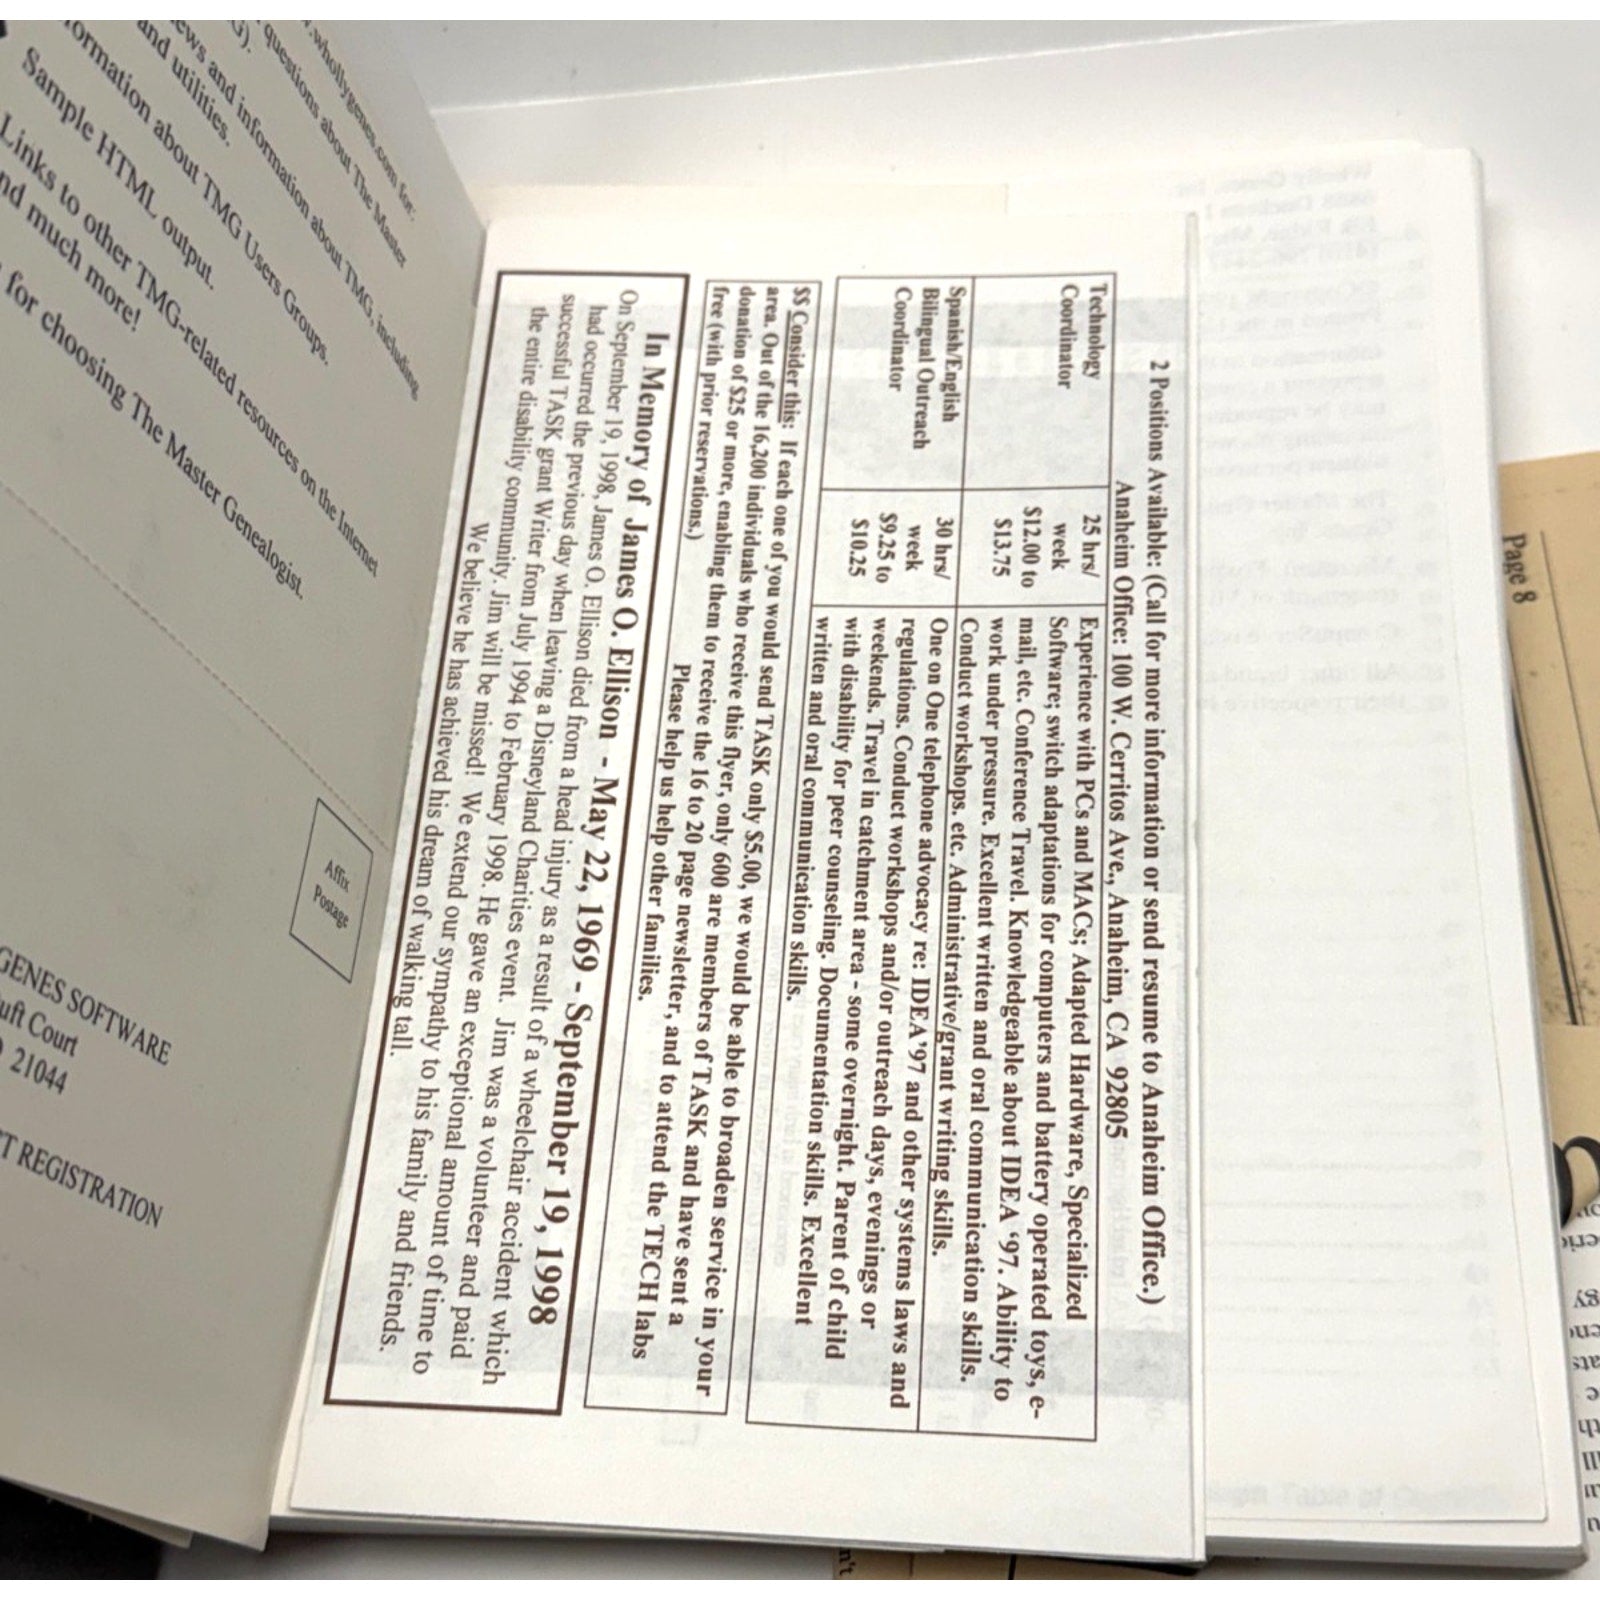 .whollygenes.com for:
questions about The Master
G).
ews and information about TMG, including
and utilities.
formation about TMG Users Groups.
Sample HTML output.
Links to other TMG-related resources on the Internet
nd much more!
for choosing The Master Genealogist.
Affix
Postage
GENES SOFTWARE
uft Court
21044
CT REGISTRATION
2 Positions Available: (Call for more information or send resume to Anaheim Office.)
Anaheim Office: 100 W. Cerritos Ave., Anaheim, CA 92805
Technology
Coordinator
25 hrs/
week
$12.00 to
$13.75
Experience with PCs and MACs; Adapted Hardware, Specialized
Software; switch adaptations for computers and battery operated toys, e-
mail, etc. Conference Travel. Knowledgeable about IDEA '97. Ability to
work under pressure. Excellent written and oral communication skills.
Conduct workshops. etc. Administrative/grant writing skills.
Spanish/English
Bilingual Outreach
Coordinator
30 hrs/
week
$9.25 to
$10.25
One on One telephone advocacy re: IDEA'97 and other systems laws and
regulations. Conduct workshops and/or outreach days, evenings or
weekends. Travel in catchment area - some overnight. Parent of child
with disability for peer counseling. Documentation skills. Excellent
written and oral communication skills.
$$ Consider this: If each one of you would send TASK only $5.00, we would be able to broaden service in your
area. Out of the 16,200 individuals who receive this flyer, only 600 are members of TASK and have sent a
donation of $25 or more, enabling them to receive the 16 to 20 page newsletter, and to attend the TECH labs
free (with prior reservations.) Please help us help other families.
In Memory of James O. Ellison - May 22, 1969 - September 19, 1998
On September 19, 1998, James O. Ellison died from a head injury as a result of a wheelchair accident which
had occurred the previous day when leaving a Disneyland Charities event. Jim was a volunteer and paid
successful TASK grant Writer from July 1994 to February 1998. He gave an exceptional amount of time to
the entire disability community. Jim will be missed! We extend our sympathy to his family and friends.
We believe he has achieved his dream of walking tall.
Page 8